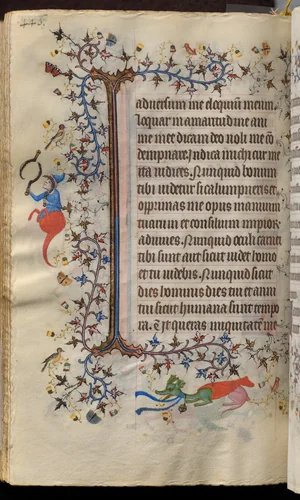 aduersum me eloquiū meum.
Loquar in amaritudine ani
me mee dicam deo noli me cō
dempnare. Indica michi cur me
ita iudices. Nunquid bonum
tibi uidetur si calumpnieris et
opprimas me opus manuum
tuarum et consilium impior
adiuues. Nunquid oculi carnei
tibi sunt aut sicut uidet homo
et tu uidebis. Nunquid sicut
dies hominis dies tui et anni
tui sicut humana sunt tempo
ra. Et queras iniquitatē me